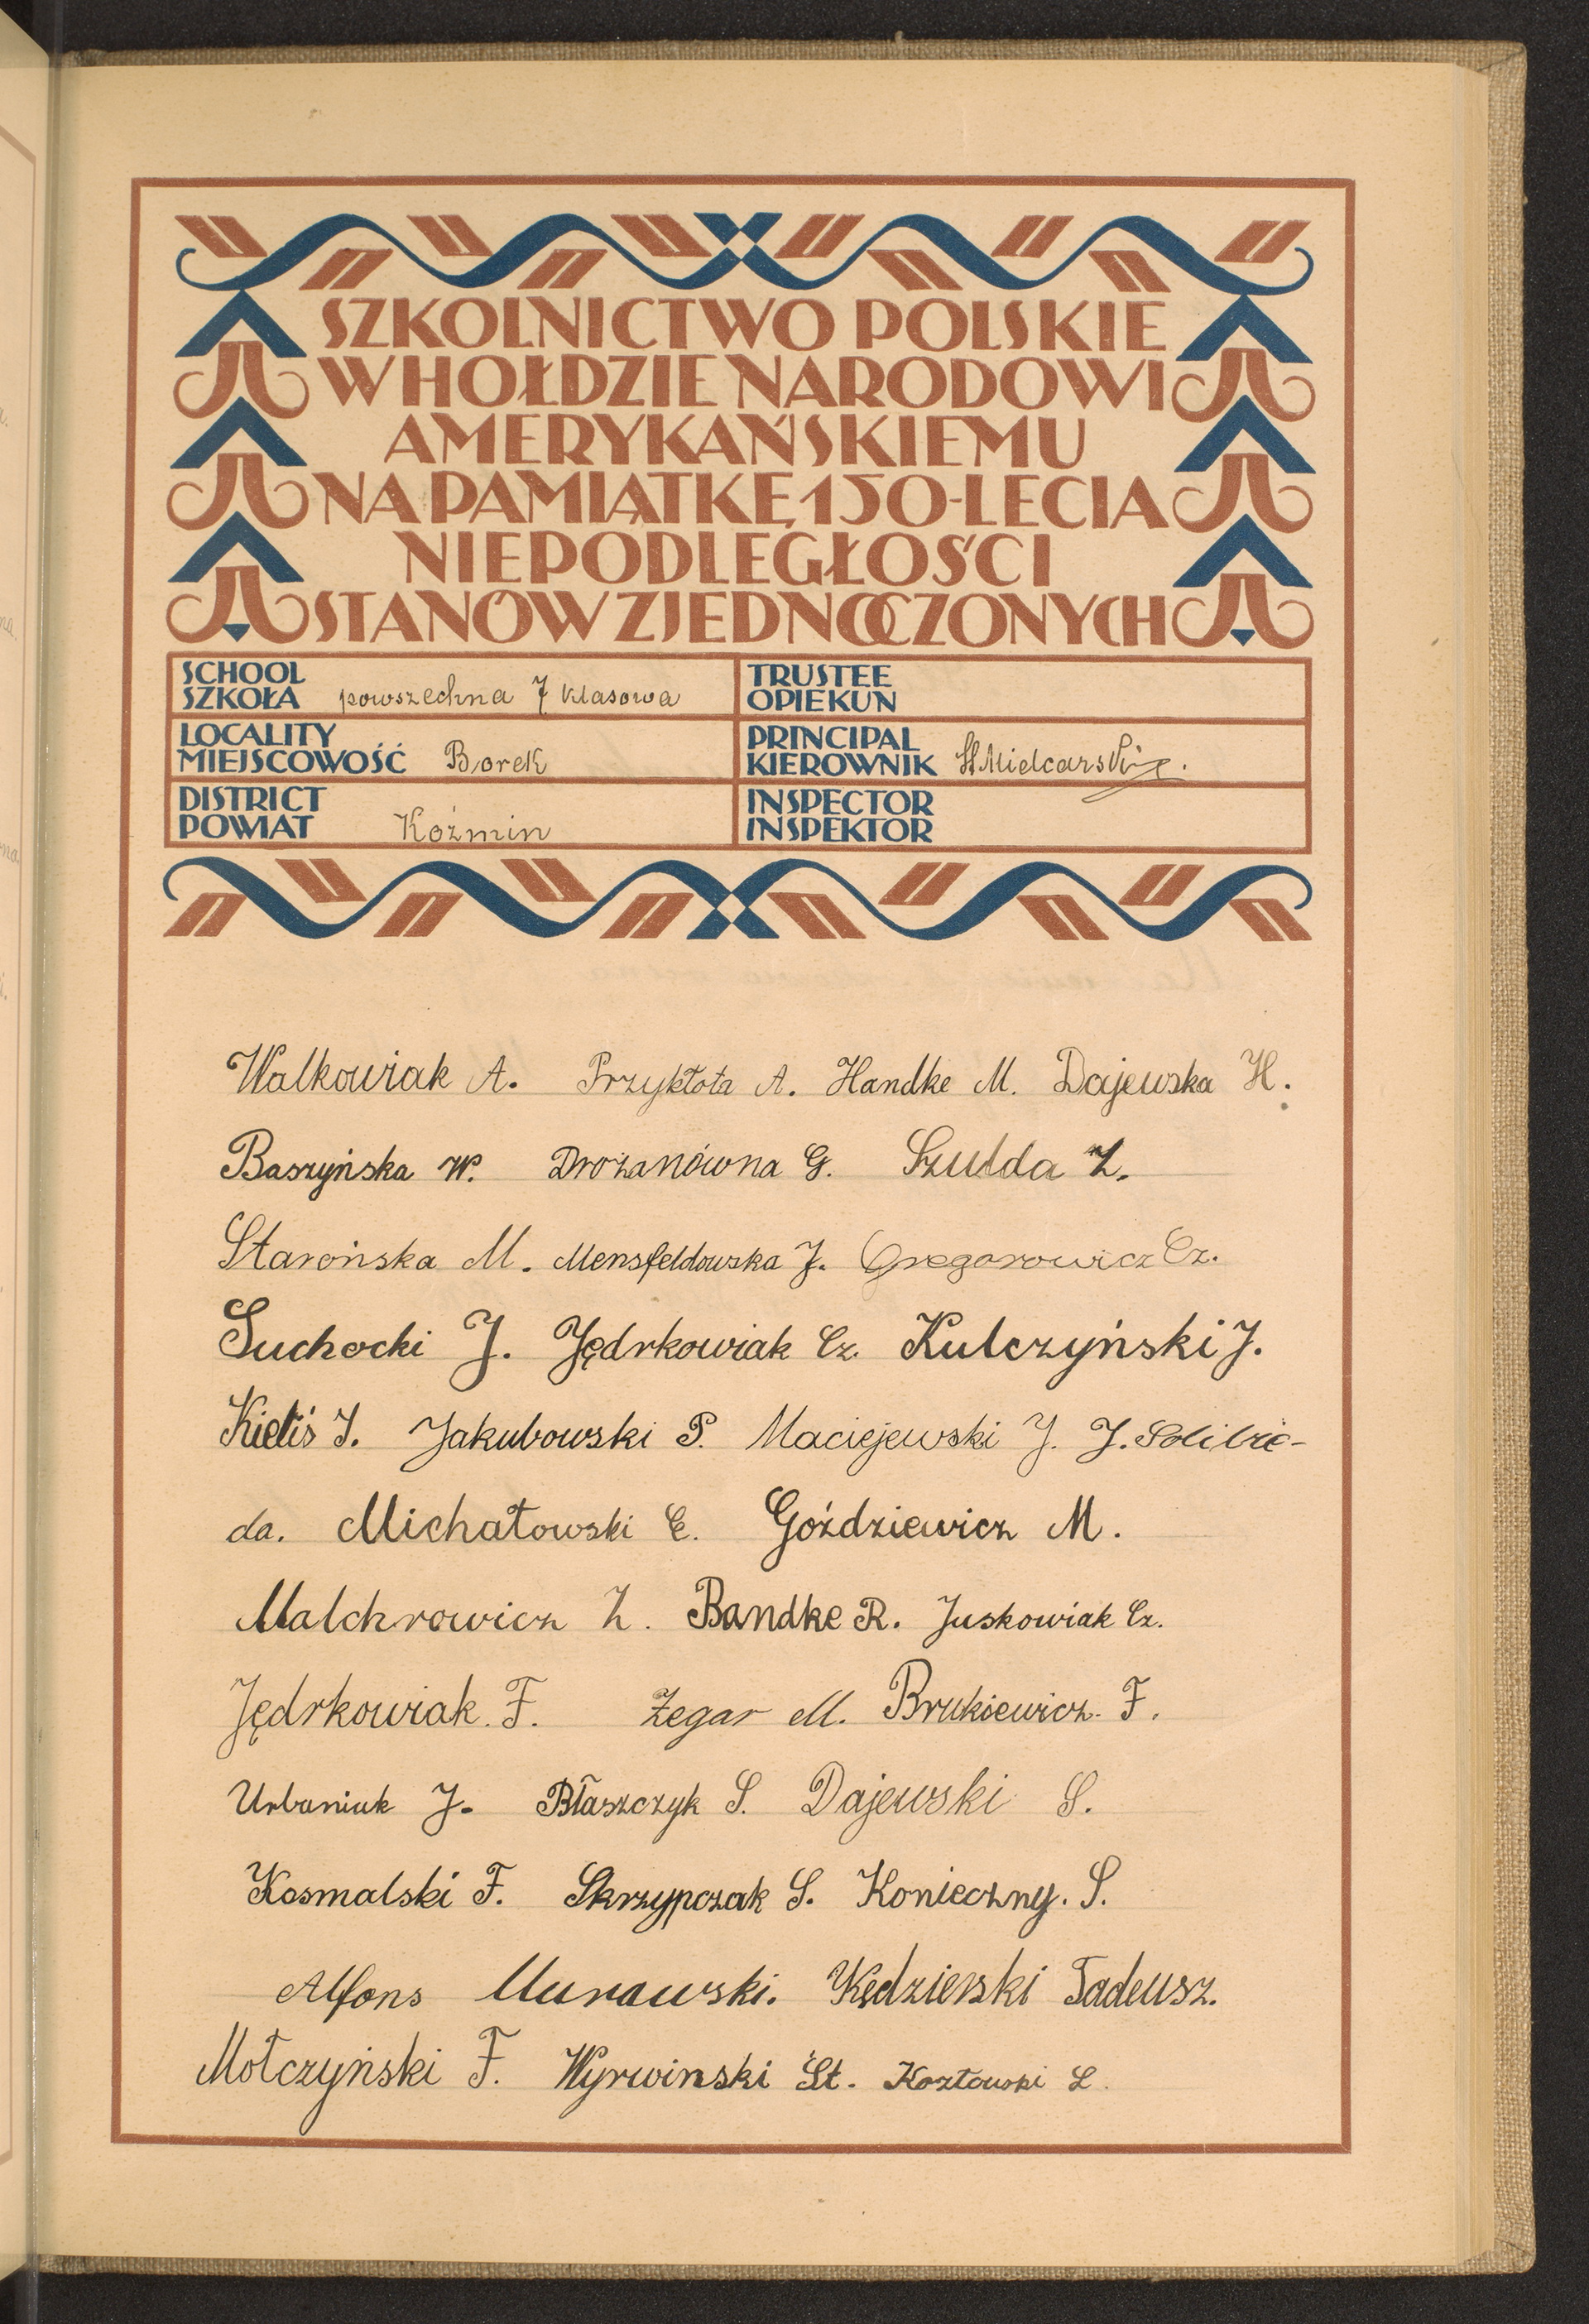 SZKOLNICTWO POLSKIE
W HOŁDZIE NARODOWI
AMERYKAŃSKIEMU
NA PAMIĄTKĘ 150-LECIA
NIEPODLEGŁOŚCI
STANÓW ZJEDNOCZONYCH
SCHOOL
SZKOŁA powszechna 7 klasowa
TRUSTEE
OPIEKUN
LOCALITY
MIEJSCOWOŚĆ Borek
PRINCIPAL
KIEROWNIK St Mielcarski
DISTRICT
POWIAT Koźmin
INSPECTOR
INSPEKTOR
Walkowiak A. Przykłota A. Handke M. Dajewska H.
Baszyńska W. Drożanówna G. Szulda Z.
Starońska M. Mensfeldowska J. Gregorowicz Cz.
Suchocki J. Jędrkowiak Cz. Kulczyński J.
Kieliś J. Jakubowski P. Maciejewski J. J. Solibie-
da. Michałowski E. Goździewicz M.
Malchrowicz Z. Bandke R. Juskowiak Cz.
Jędrkowiak. F. Zegar M. Brukiewicz. F.
Urbaniak J. Błaszczyk S. Dajewski S.
Kosmalski F. Skrzypczak S. Konieczny. S.
Alfons Murawski. Kędzierski Tadeusz.
Mołczyński F. Wyrwinski St. Kozłowski L.